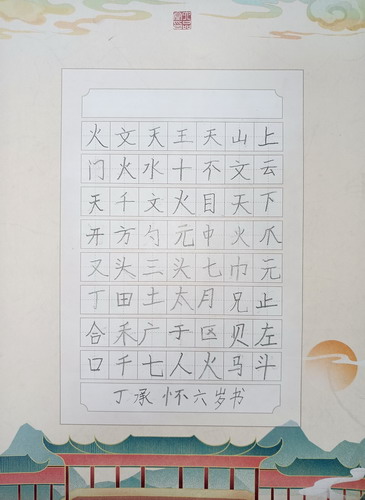 火文天王天山上
门火水十不文云
天千文火目天下
开方勺元中火爪
又头三头七巾元
丁田土太月兄止
合禾广于区贝左
口千七人火马斗
丁承怀六岁书